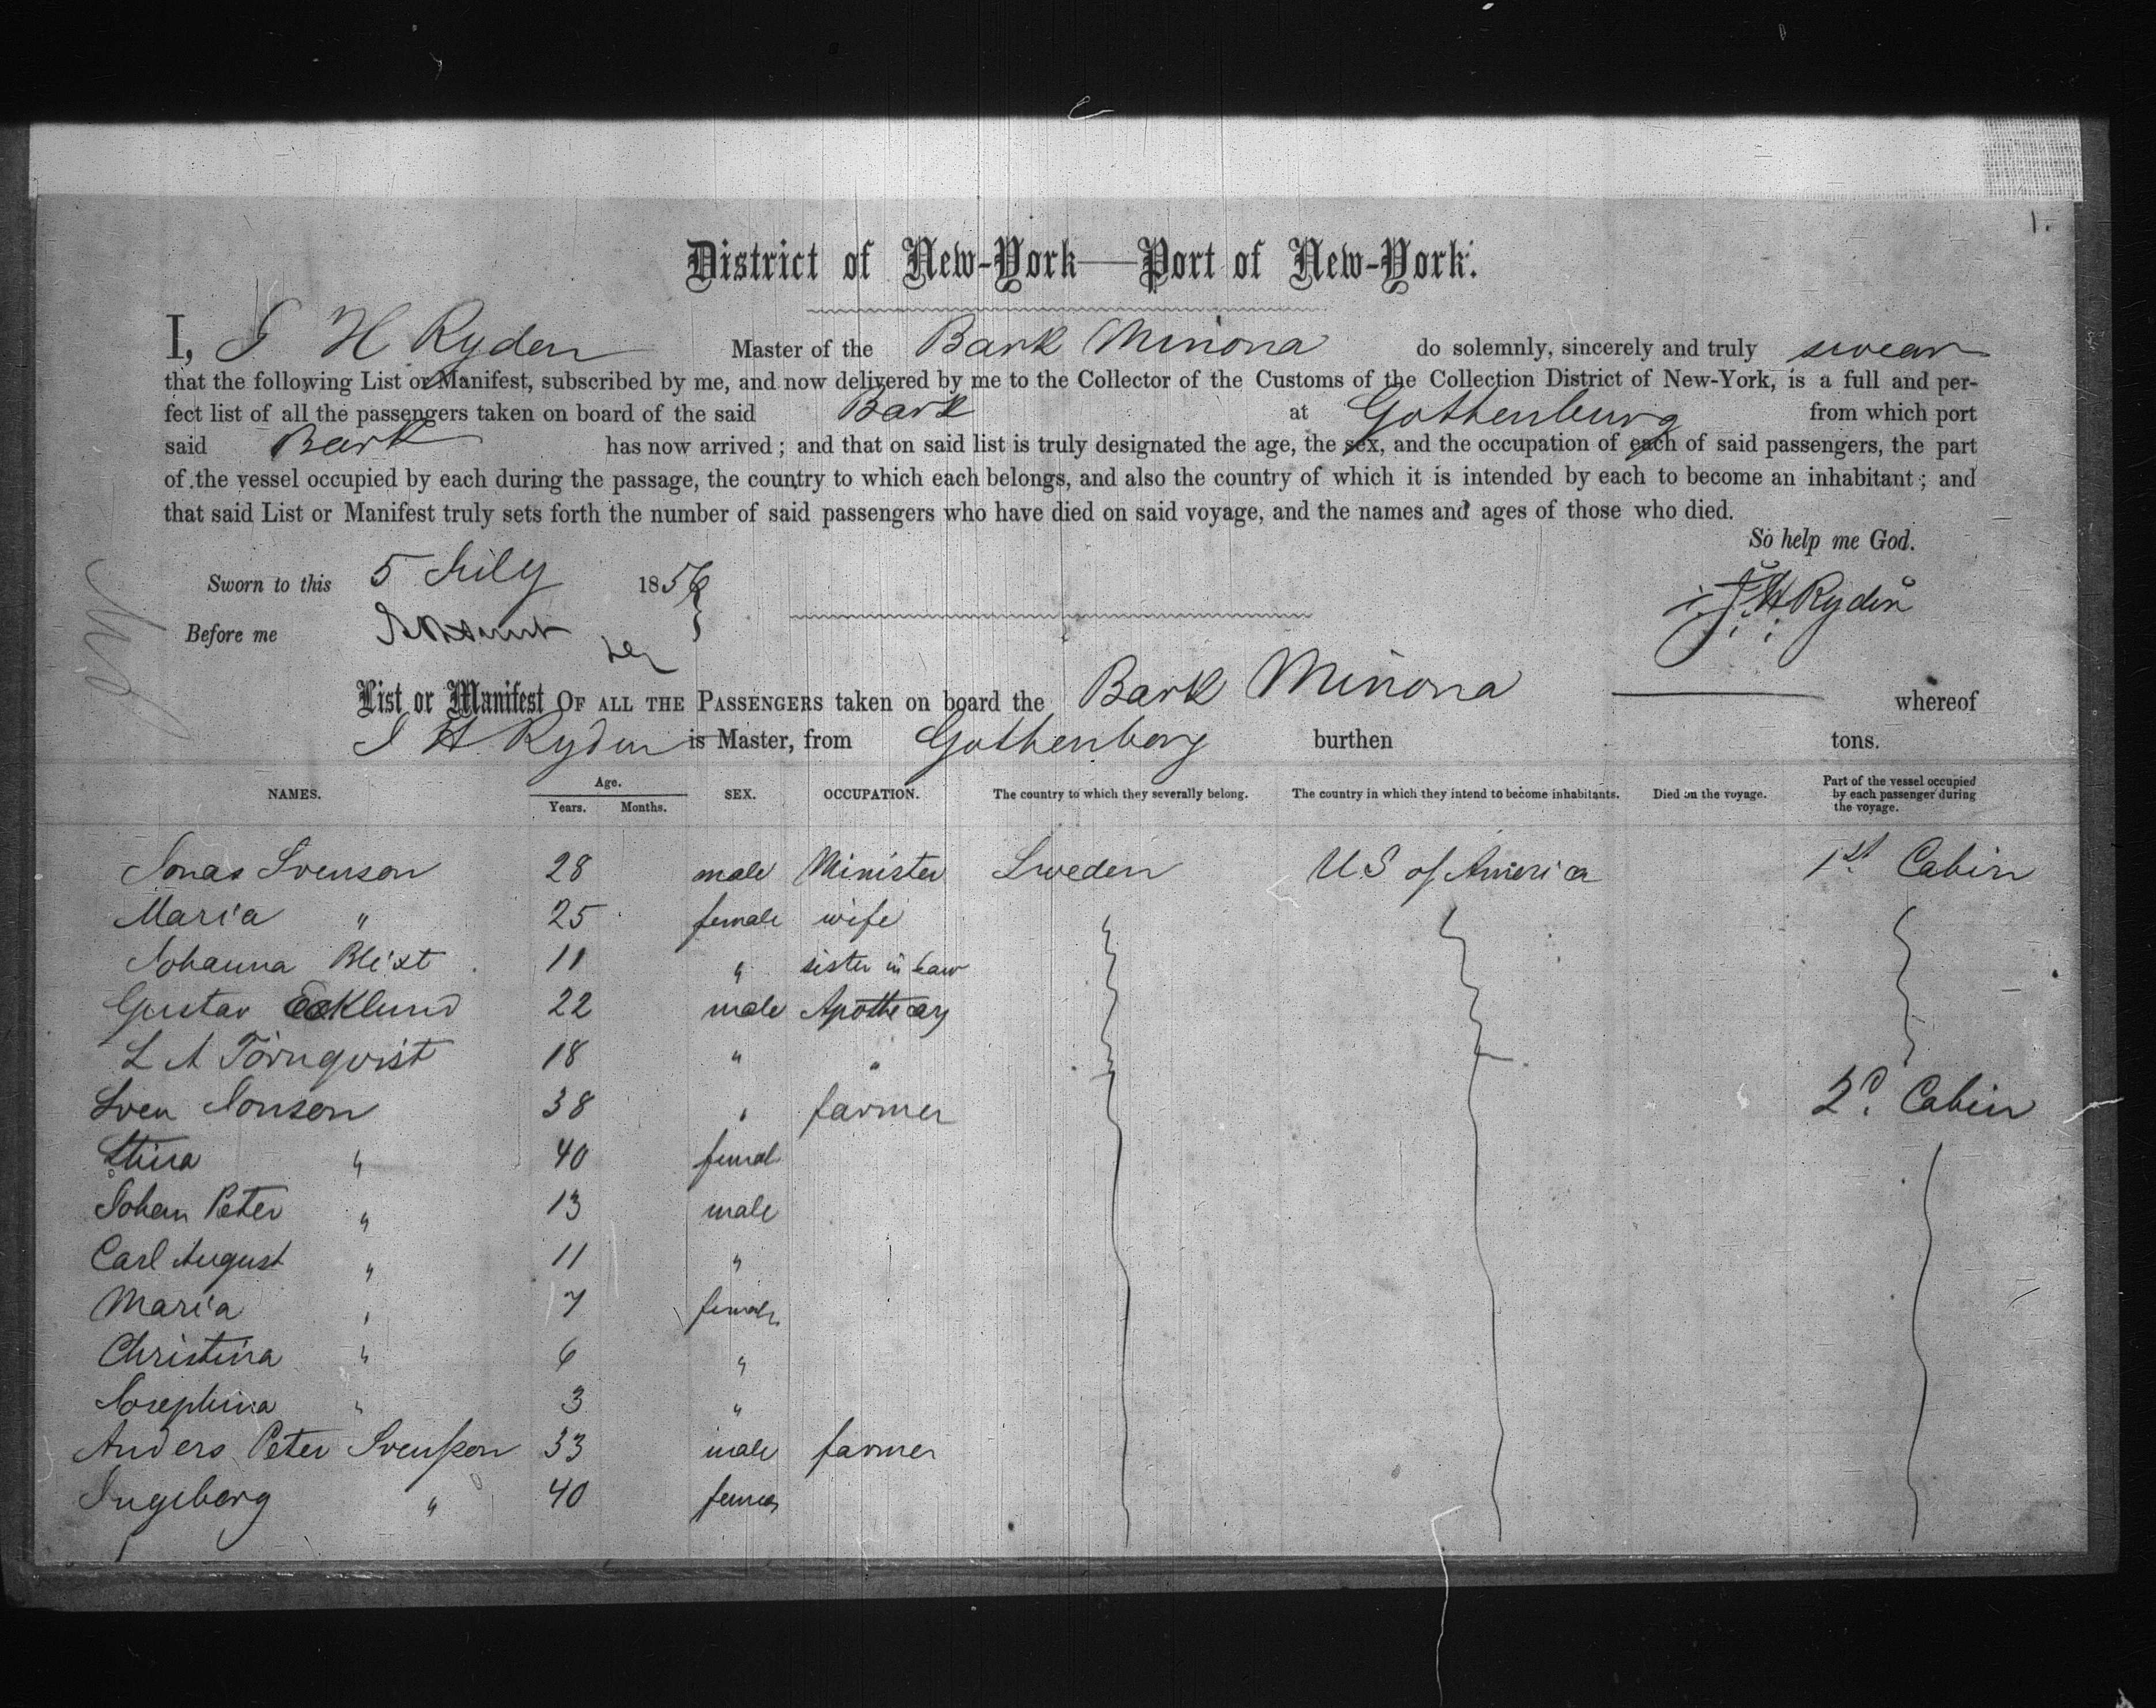 1.
District of New-York—Port of New-York.
I, J H Ryden Master of the Bark Minona do solemnly, sincerely and truly swear
that the following List or Manifest, subscribed by me, and now delivered by me to the Collector of the Customs of the Collection District of New-York, is a full and per-
fect list of all the passengers taken on board of the said Bark at Gothenburg from which port
said Bark has now arrived; and that on said list is truly designated the age, the sex, and the occupation of each of said passengers, the part
of the vessel occupied by each during the passage, the country to which each belongs, and also the country of which it is intended by each to become an inhabitant; and
that said List or Manifest truly sets forth the number of said passengers who have died on said voyage, and the names and ages of those who died.
So help me God.
Sworn to this 5 July 1856
J H Rydin
Before me
List or Manifest OF ALL THE PASSENGERS taken on board the Bark Minona whereof
J H Ryden is Master, from Gothenborg burthen tons.
NAMES. Age. Years. Months. SEX. OCCUPATION. The country to which they severally belong. The country in which they intend to become inhabitants. Died on the voyage. Part of the vessel occupied by each passenger during the voyage.
Jonas Svenson 28 male Minister Sweden U.S of America 1st Cabin
Maria " 25 female wife
Johanna Blixt 11 " sister in law
Gustav Ecklund 22 male Apothecary
L A Törnqvist 18 " "
Sven Jonson 38 " farmer 2d. Cabin
Stina " 40 femal
Johan Peter " 13 male
Carl August " 11 "
Maria " 7 female
Christina " 6 "
Josephina " 3 "
Anders Peter Svenßon 33 male farmer
Ingeborg " 40 female